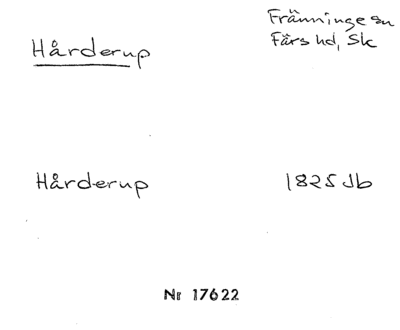 Främninge sn
Hårderup
Färs hd, Sk
Hårderup 1825 Jb
Nr 17622